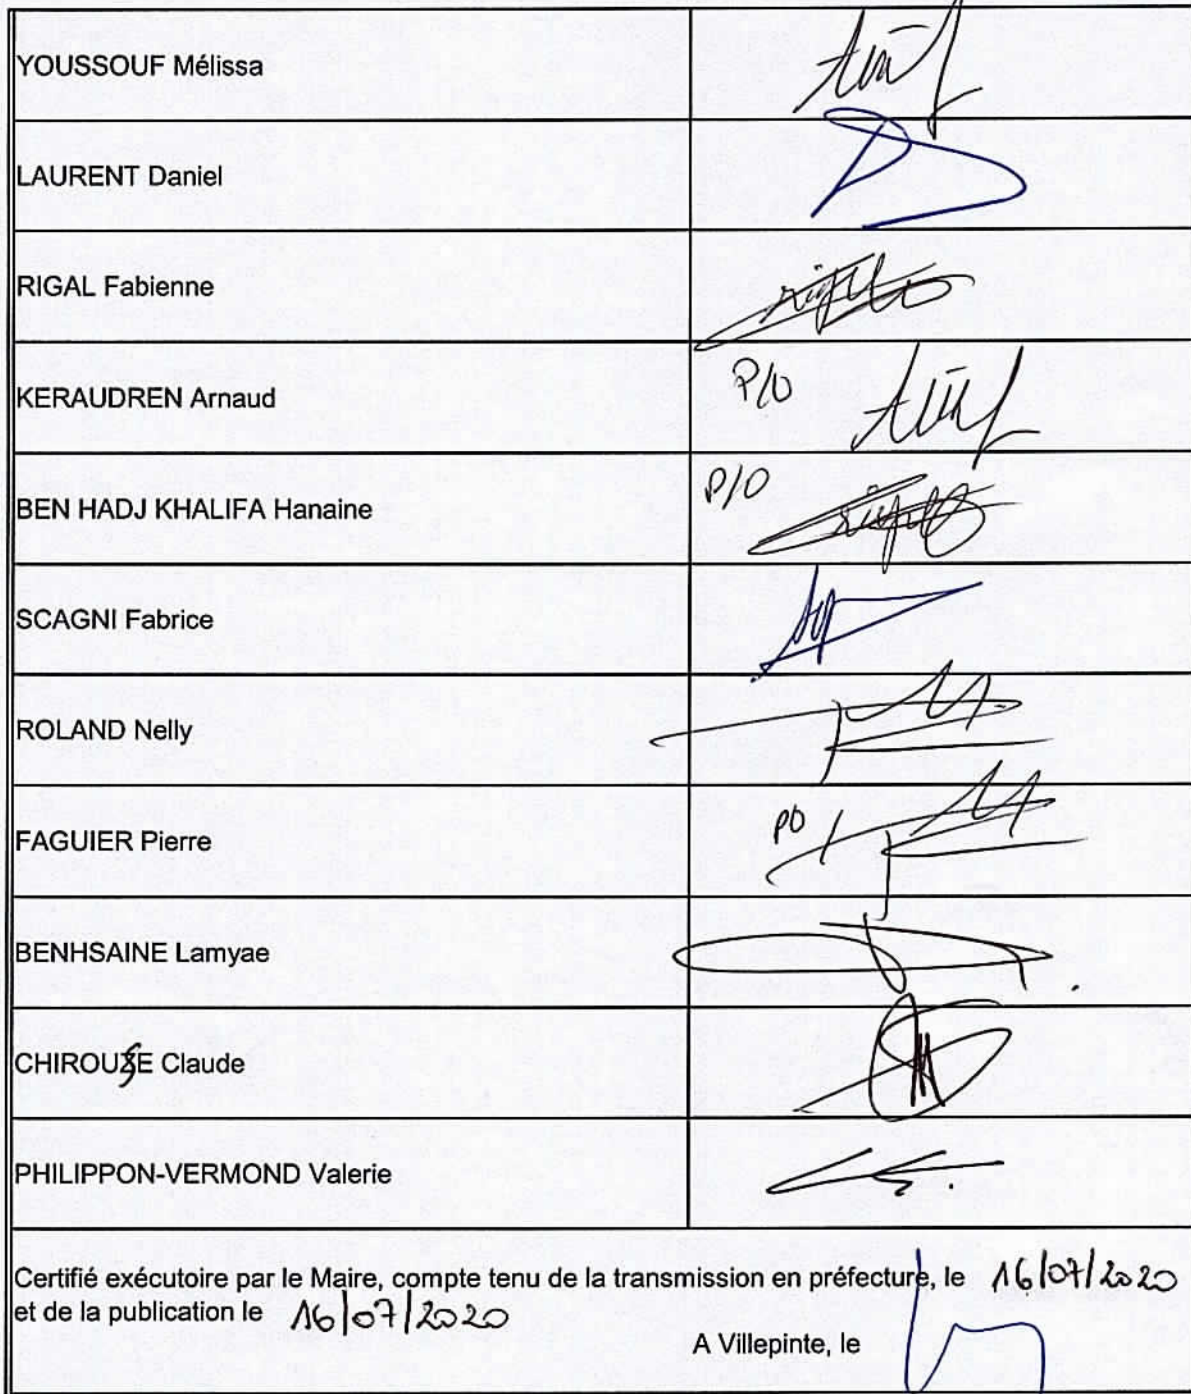 YOUSSOUF Mélissa
LAURENT Daniel
RIGAL Fabienne
KERAUDREN Arnaud P/O
BEN HADJ KHALIFA Hanaine P/O
SCAGNI Fabrice
ROLAND Nelly
FAGUIER Pierre PO
BENHSAINE Lamyae
CHIROUSE Claude
PHILIPPON-VERMOND Valerie
Certifié exécutoire par le Maire, compte tenu de la transmission en préfecture, le 16/07/2020
et de la publication le 16/07/2020
A Villepinte, le